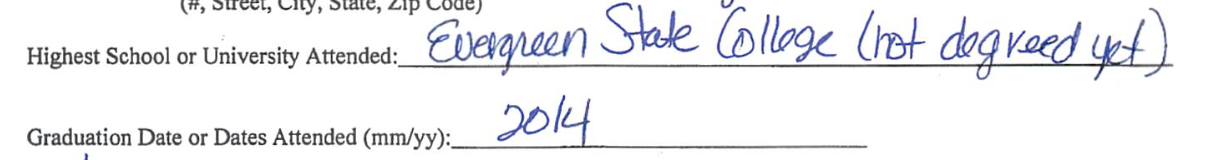 (#, Street, City, State, Zip Code)
Highest School or University Attended: Evergreen State College (not degreed yet)
Graduation Date or Dates Attended (mm/yy): 2014